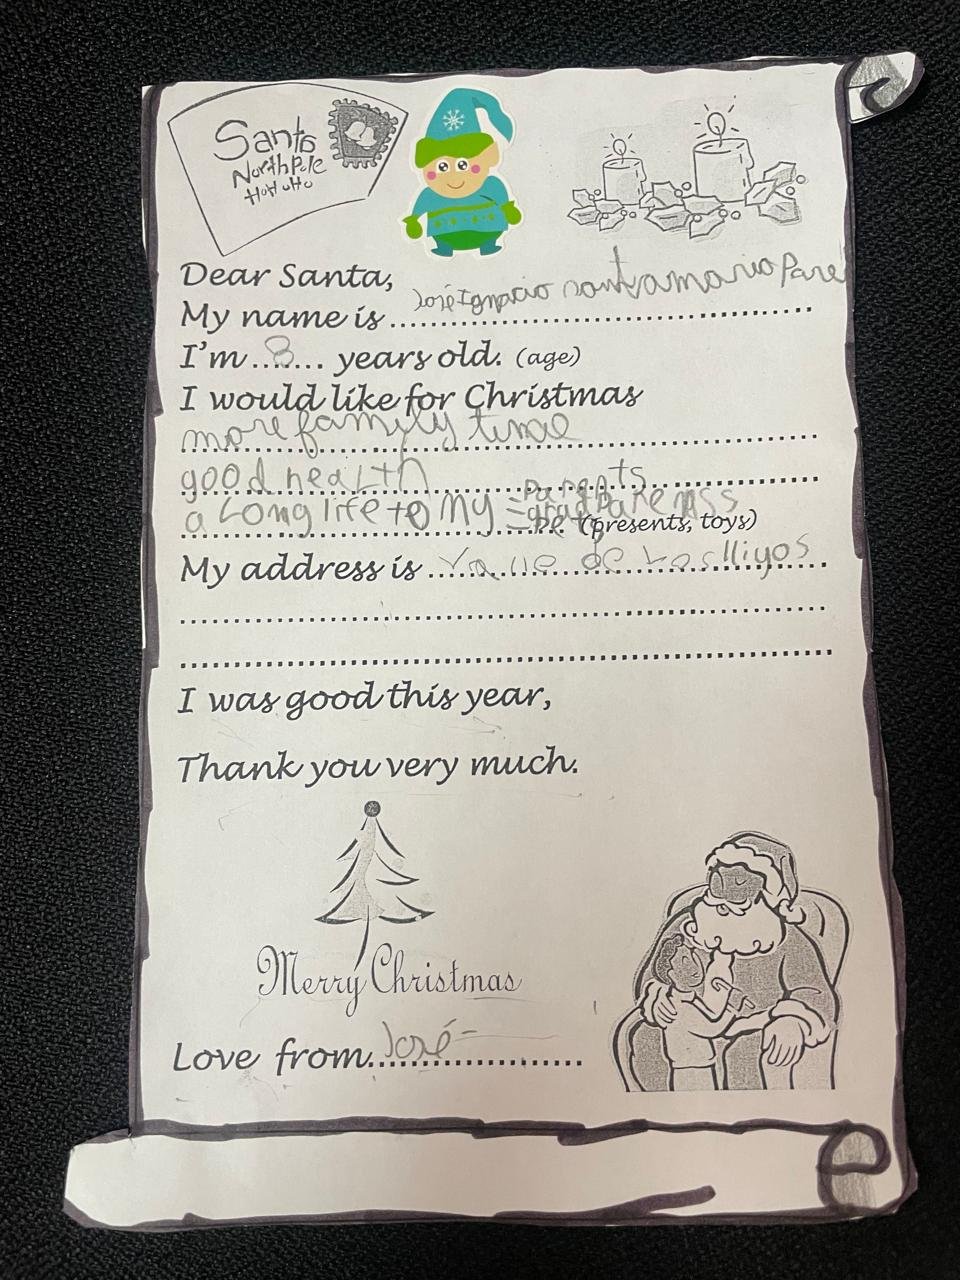 Santa
North Pole
HoHoHo
Dear Santa,
My name is José Ignacio santamaria Pare
I'm 8 years old. (age)
I would like for Christmas
more family time
good health
a Long life to my = Parents
= gradparenss
= Pet (presents, toys)
My address is Valle de Los lliyos
I was good this year,
Thank you very much.
Merry Christmas
Love from José